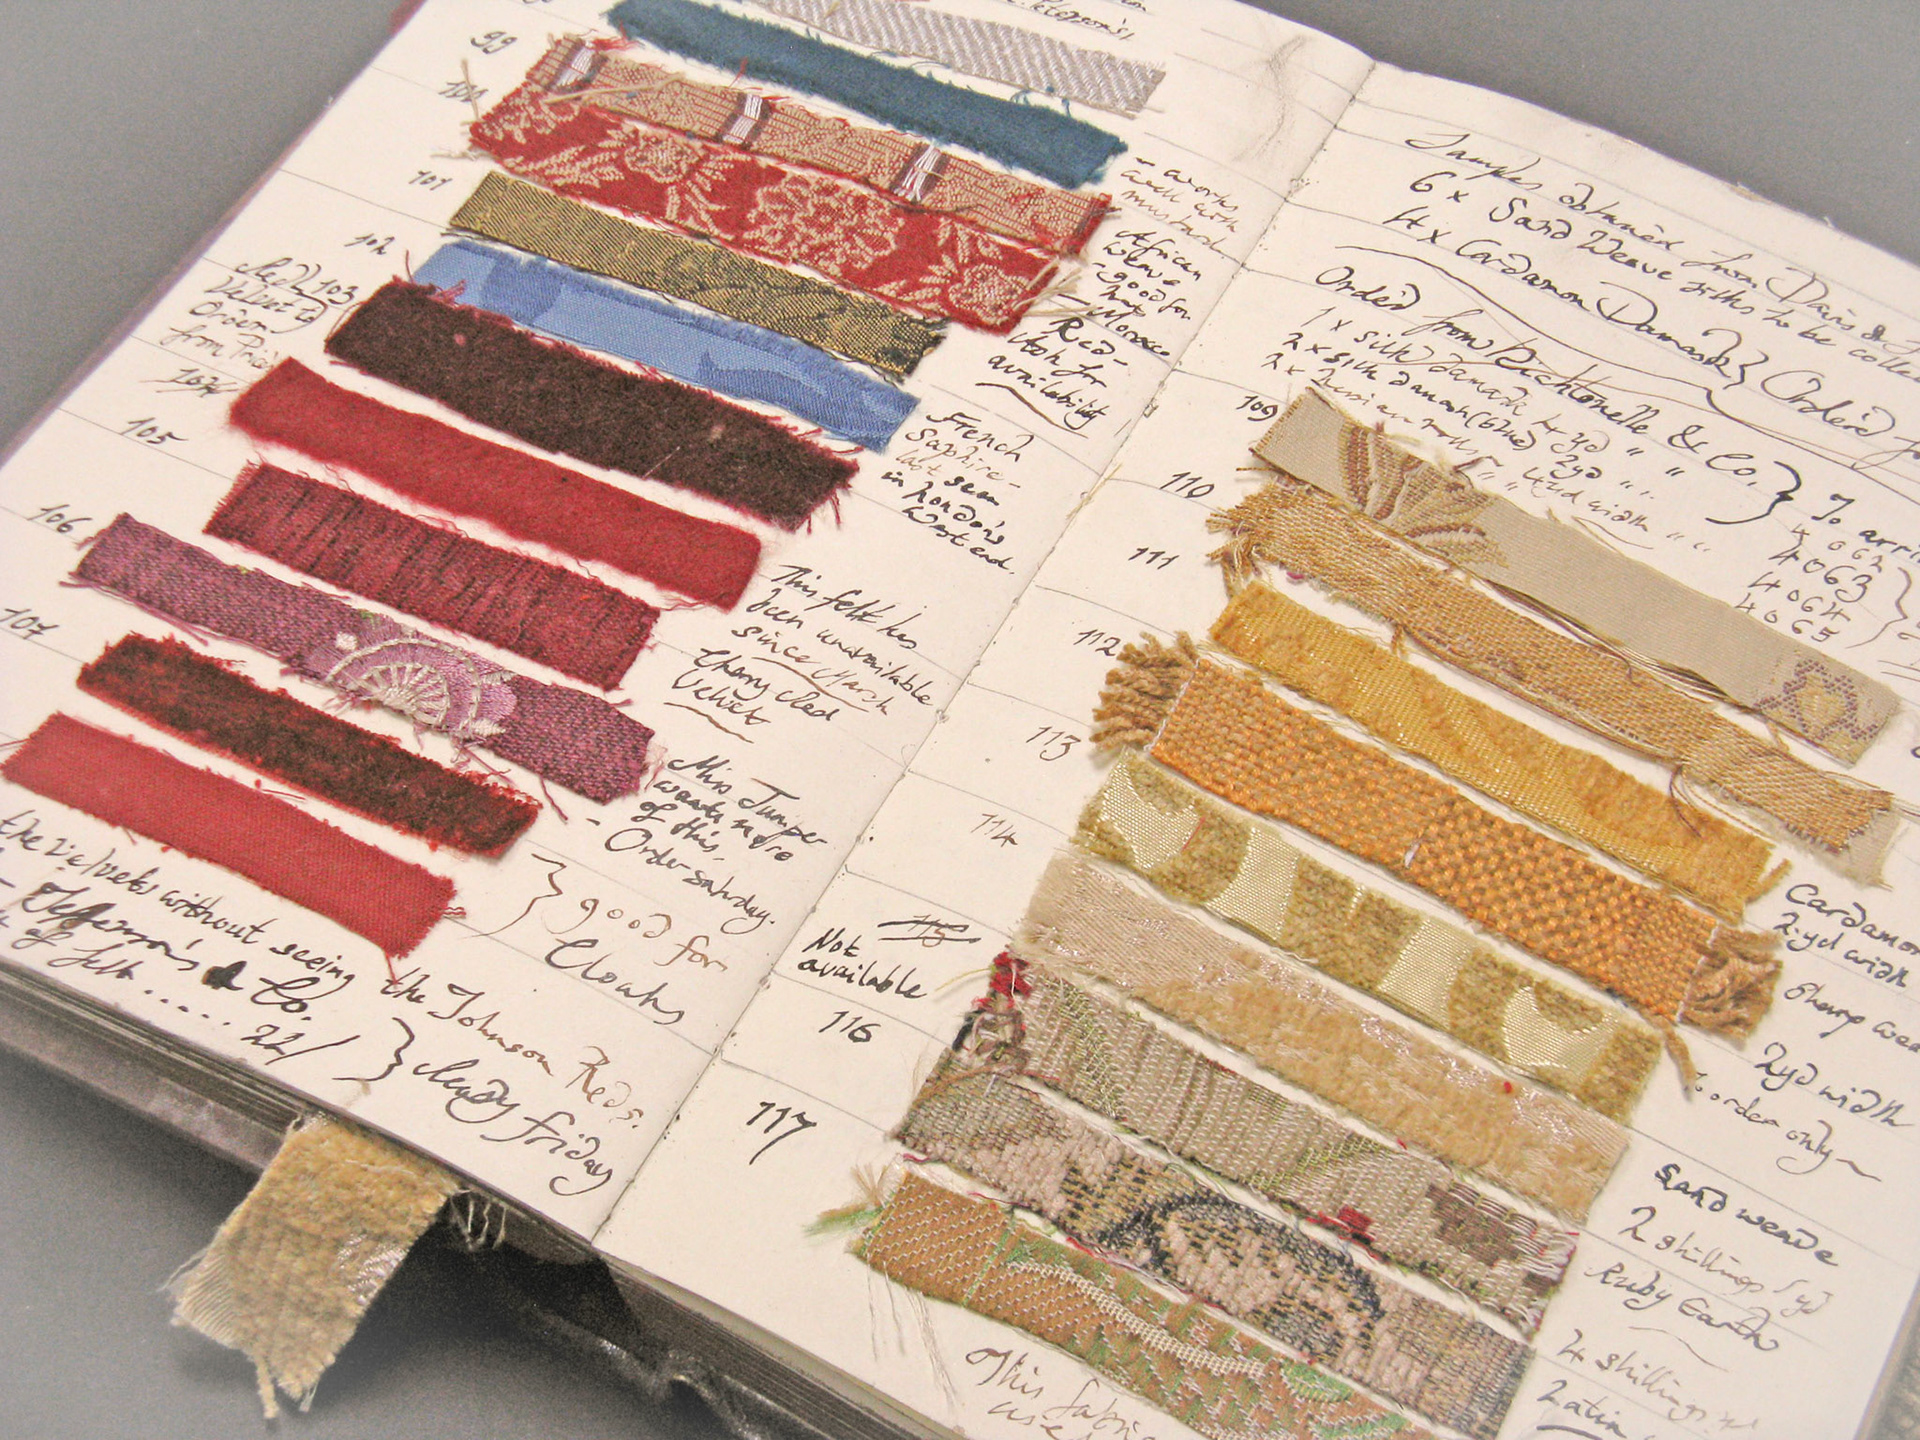 Peterson's!
99
101
102
103
from
105
106
107
- works
well with
mustard
African
weave
- good for
hat
- Morocco
Red -
Ask for
availability
French
Saphire -
last seen
in London's
West end.
This felt has
been unavailable
since March
Cherry Red
Velvet
Miss Juniper
wants more
of this.
- Order Saturday.
} good for
Cloaks
the velvets without seeing the Johnson Reds.
- Jefferson's & Co.
of felt ..... 22/ } friday
Samples obtained from Davis &
6 x Sand Weave silks to be
4 x Cardamon Damask } Ordered
Ordered from Richtonelle & Co.
1 x silk damask 4 yd " "
2 x silk damask 2yd " "
2 x " " width " "
} To
4062
4063
4064
4065
109
110
111
112
113
114
115
Not
available
116
117
Cardamon
2 yd width
Sharp
2yd width
To order only ~
Sand weave
2 shillings / yd
Ruby Earth
4 shillings yd
Latin
This
used